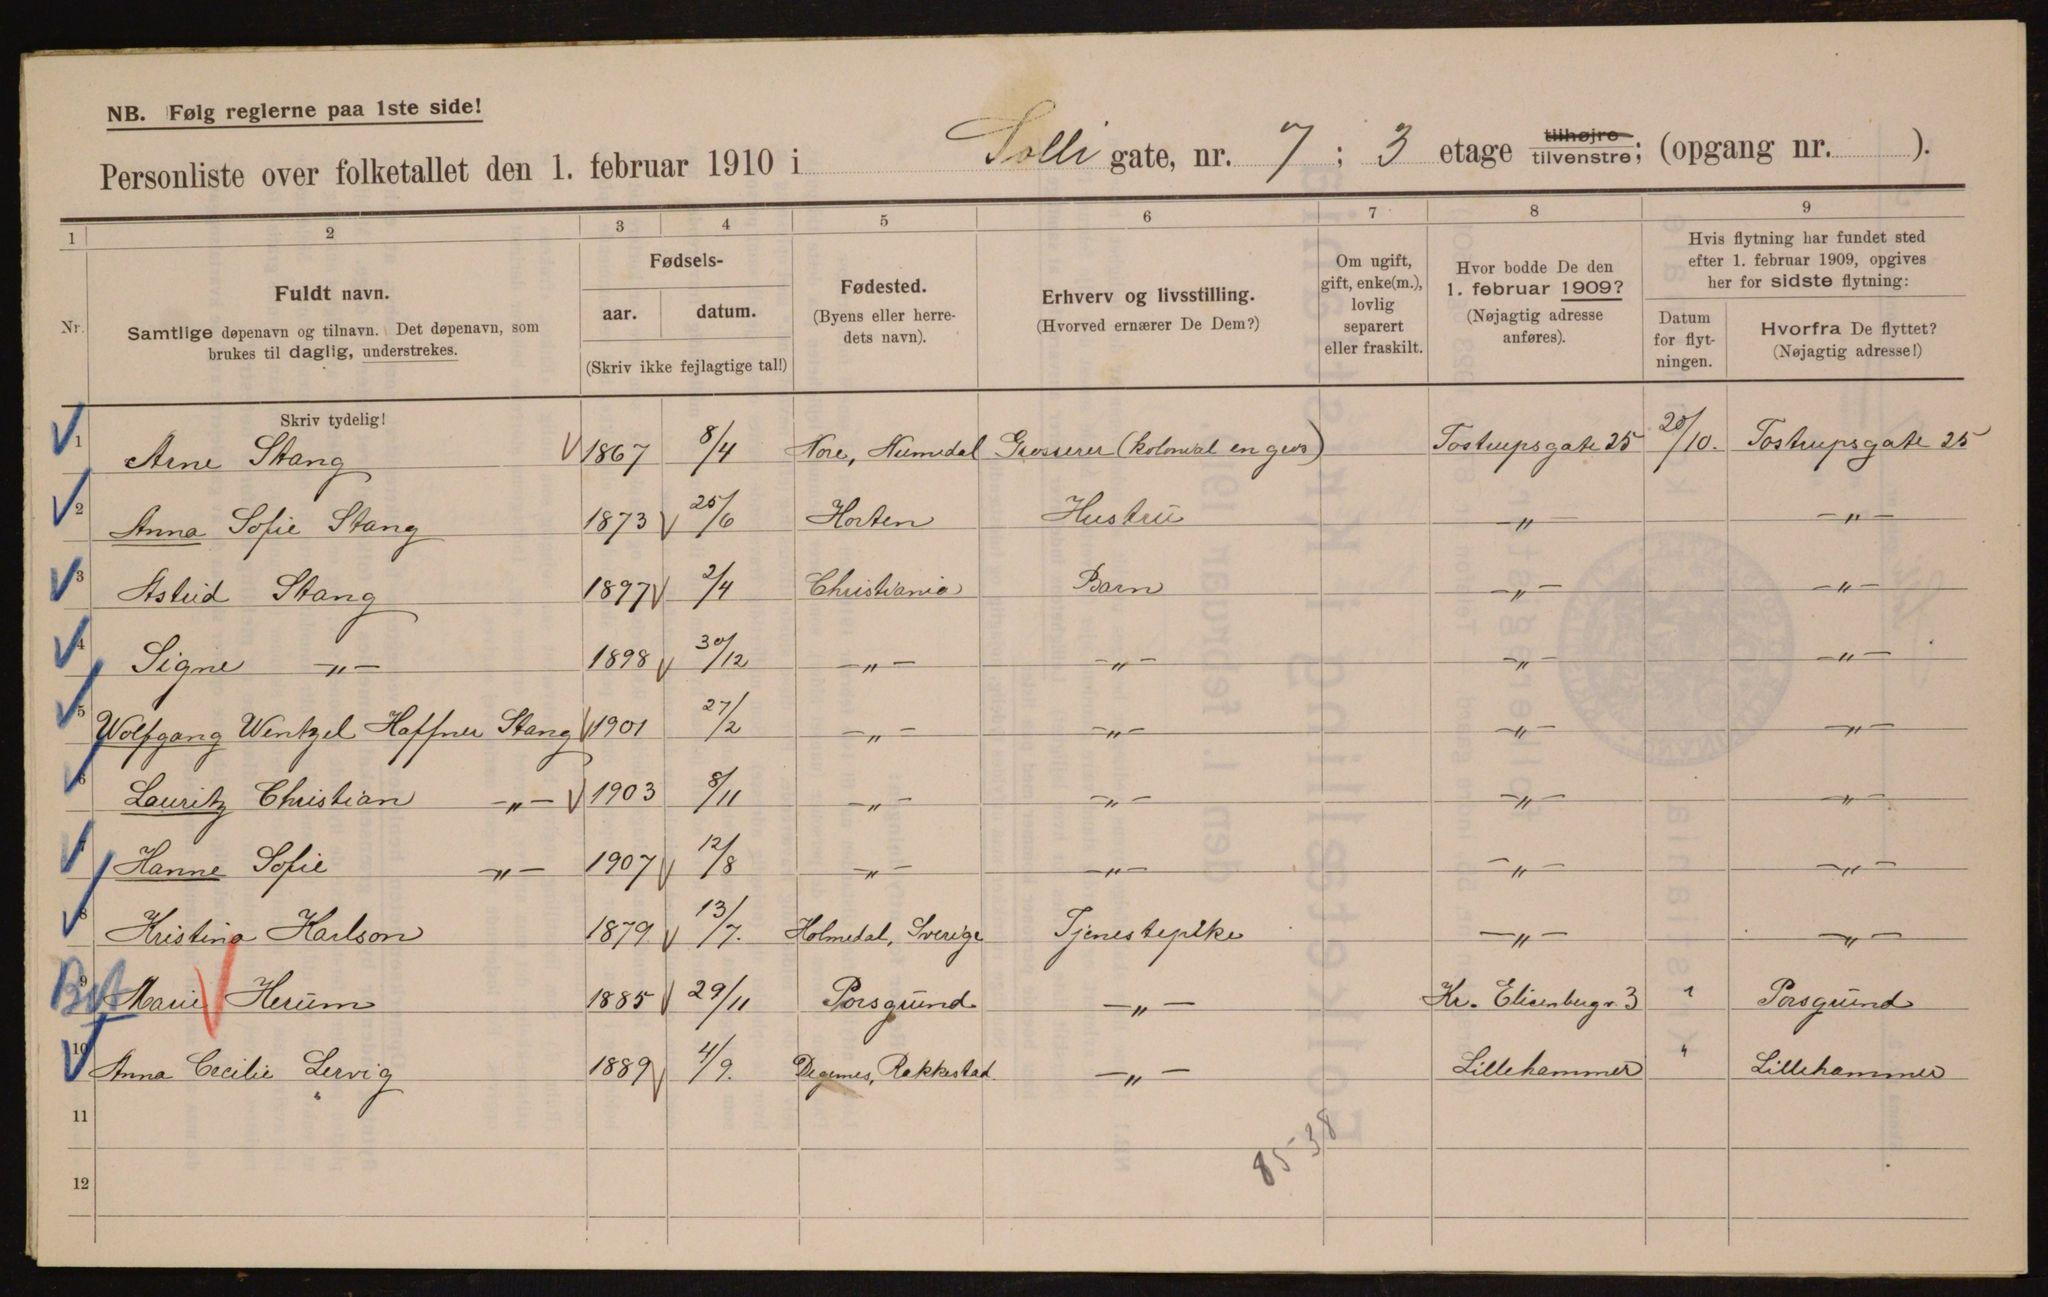 NB. Følg reglerne paa 1ste side!
Personliste over folketallet den 1. februar 1910 i Solli gate, nr. 7 ; 3 etage tilhøjre tilvenstre; (opgang nr. ).
1 2 3 4 5 6 7 8 9
Nr.
Fuldt navn.
Samtlige døpenavn og tilnavn. Det døpenavn, som
brukes til daglig, understrekes.
Fødsels-
aar. datum.
(Skriv ikke fejlagtige tal!)
Fødested.
(Byens eller herre-
dets navn).
Erhverv og livsstilling.
(Hvorved ernærer De Dem?)
Om ugift,
gift, enke(m.),
lovlig
separert
eller fraskilt.
Hvor bodde De den
1. februar 1909?
(Nøjagtig adresse
anføres).
Hvis flytning har fundet sted
efter 1. februar 1909, opgives
her for sidste flytning:
Datum
for flyt-
ningen.
Hvorfra De flyttet?
(Nøjagtig adresse!)
Skriv tydelig!
1 Arne Stang 1867 8/4 Nore, Numedal Grosserer (kolonial en gros) Tostrupsgate 25 20/10. Tostrupsgate 25
2 Anna Sofie Stang 1873 25/6 Horten Hustru -"- -"-
3 Astrid Stang 1897 2/4 Christiania Barn -"- -"-
4 Signe -"- 1898 30/12 -"- -"- -"- -"-
5 Wolfgang Wentzel Haffner Stang 1901 27/2 -"- -"- -"- -"-
6 Lauritz Christian -"- 1903 8/11 -"- -"- -"- -"-
7 Hanne Sofie -"- 1907 12/8 -"- -"- -"- -"-
8 Kristina Karlson 1879 13/7. Holmedal, Sverige Tjenestepike -"- -"-
9 Marie Herum 1885 29/11 Porsgrund -"- Kr. Elisenbergv. 3 " Porsgrund
10 Anna Cecilie Lervig 1889 4/9. Degernes, Rakkestad -"- Lillehammer " Lillehammer
11
12
85-38